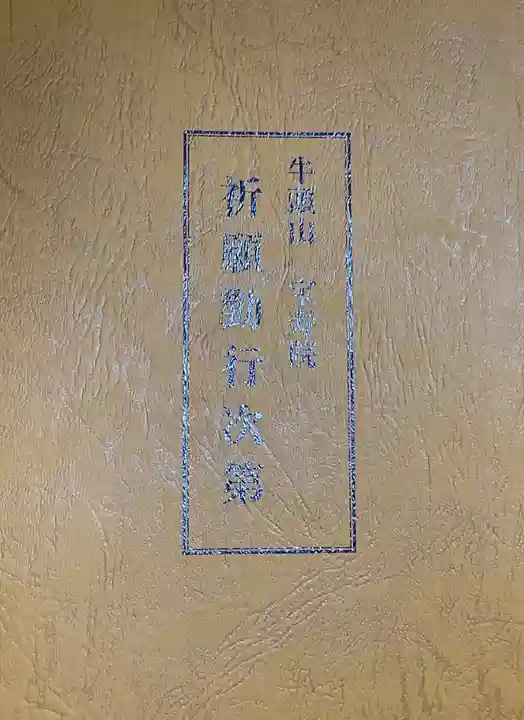 牛頭山 宝寿院
祈願勤行次第